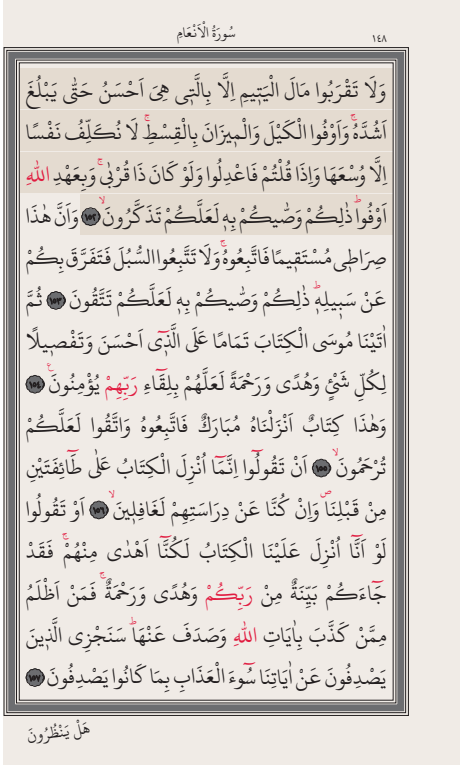 سُورَةُ الْاَنْعَامِ
١٤٨
وَلَا تَقْرَبُوا مَالَ الْيَت۪يمِ اِلَّا بِالَّت۪ي هِيَ اَحْسَنُ حَتّٰى يَبْلُغَ
اَشُدَّهُۚ وَاَوْفُوا الْكَيْلَ وَالْم۪يزَانَ بِالْقِسْطِۚ لَا نُكَلِّفُ نَفْسًا
اِلَّا وُسْعَهَا وَاِذَا قُلْتُمْ فَاعْدِلُوا وَلَوْ كَانَ ذَا قُرْبٰىۚ وَبِعَهْدِ اللّٰهِ
اَوْفُواۜ ذٰلِكُمْ وَصّٰيكُمْ بِه۪ لَعَلَّكُمْ تَذَكَّرُونَۙ ﴿١٥٢﴾ وَاَنَّ هٰذَا
صِرَاط۪ي مُسْتَق۪يمًا فَاتَّبِعُوهُۚ وَلَا تَتَّبِعُوا السُّبُلَ فَتَفَرَّقَ بِكُمْ
عَنْ سَب۪يلِه۪ۜ ذٰلِكُمْ وَصّٰيكُمْ بِه۪ لَعَلَّكُمْ تَتَّقُونَ ﴿١٥٣﴾ ثُمَّ
اٰتَيْنَا مُوسَى الْكِتَابَ تَمَامًا عَلَى الَّذ۪ٓي اَحْسَنَ وَتَفْص۪يلًا
لِكُلِّ شَيْءٍ وَهُدًى وَرَحْمَةً لَعَلَّهُمْ بِلِقَٓاءِ رَبِّهِمْ يُؤْمِنُونَ۟ ﴿١٥٤﴾
وَهٰذَا كِتَابٌ اَنْزَلْنَاهُ مُبَارَكٌ فَاتَّبِعُوهُ وَاتَّقُوا لَعَلَّكُمْ
تُرْحَمُونَۙ ﴿١٥٥﴾ اَنْ تَقُولُٓوا اِنَّمَٓا اُنْزِلَ الْكِتَابُ عَلٰى طَٓائِفَتَيْنِ
مِنْ قَبْلِنَاۖ وَاِنْ كُنَّا عَنْ دِرَاسَتِهِمْ لَغَافِل۪ينَۙ ﴿١٥٦﴾ اَوْ تَقُولُوا
لَوْ اَنَّٓا اُنْزِلَ عَلَيْنَا الْكِتَابُ لَكُنَّٓا اَهْدٰى مِنْهُمْۚ فَقَدْ
جَٓاءَكُمْ بَيِّنَةٌ مِنْ رَبِّكُمْ وَهُدًى وَرَحْمَةٌۚ فَمَنْ اَظْلَمُ
مِمَّنْ كَذَّبَ بِاٰيَاتِ اللّٰهِ وَصَدَفَ عَنْهَاۜ سَنَجْزِي الَّذ۪ينَ
يَصْدِفُونَ عَنْ اٰيَاتِنَا سُٓوءَ الْعَذَابِ بِمَا كَانُوا يَصْدِفُونَ ﴿١٥٧﴾
هَلْ يَنْظُرُونَ